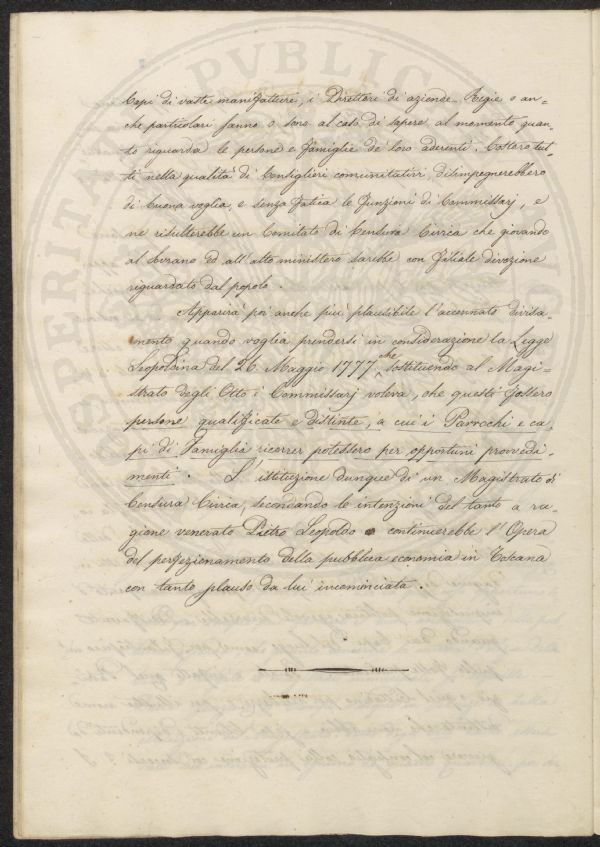 Capi di vaste manifatture, i Direttori di aziende Regie o an-
che particolari fanno o sono al caso di sapere al momento quan-
to riguarda le persone e famiglie de' loro aderenti. Costoro tut-
ti nella qualità di Consiglieri comunitativi disimpegnerebbero
di buona voglia, e senza fatica le funzioni di Commissarj, e
ne risulterebbe un Comitato di Censura Civica che giovando
al Sovrano ed all'alto ministero sarebbe con filiale divozione
riguardato dal popolo.
Apparirà poi anche più plausibile l'accennato divisa-
mento quando voglia prendersi in considerazione la Legge
Leopoldina del 26 Maggio 1777 che sostituendo al Magi-
strato degli Otto i Commissarj voleva, che questi fossero
persone qualificate e distinte, a cui i Parrochi e ca-
pi di famiglia ricorrer potessero per opportuni provvedi-
menti. L'istituzione dunque di un Magistrato di
Censura Civica, secondando le intenzioni del tanto a ra-
gione venerato Pietro Leopoldo continuerebbe l'Opera
del perfezionamento della pubblica economia in Toscana
con tanto plauso da lui incominciata.